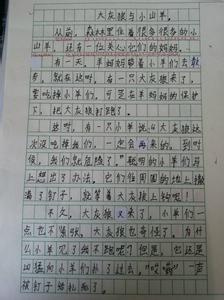 大灰狼与小山羊。
从前，森林里住着很多很多的小
山羊，还有一位关心它们的妈妈。
有一天，羊妈妈带着小羊们去
，就在这时，有一只大灰狼来了，
要吃掉小羊们，可是在羊妈妈的保护
下，把大灰狼打跑了。
这时，有一只小羊说：大灰狼这
次没吃掉我们，一定会再来的，到时
候，我们就危险了。聪明的小羊们马
上想出了办法，它们在周围的地上撒
满了钉子，就等着大灰狼上钩啦！
不久，大灰狼又来了，小羊们一
点也不紧张。大灰狼也奇怪了，为什
么小羊见了我不跑呢？但是，它还是
凶猛向小羊们扑了过去，“哎哟”一声
被钉子给扎死了。